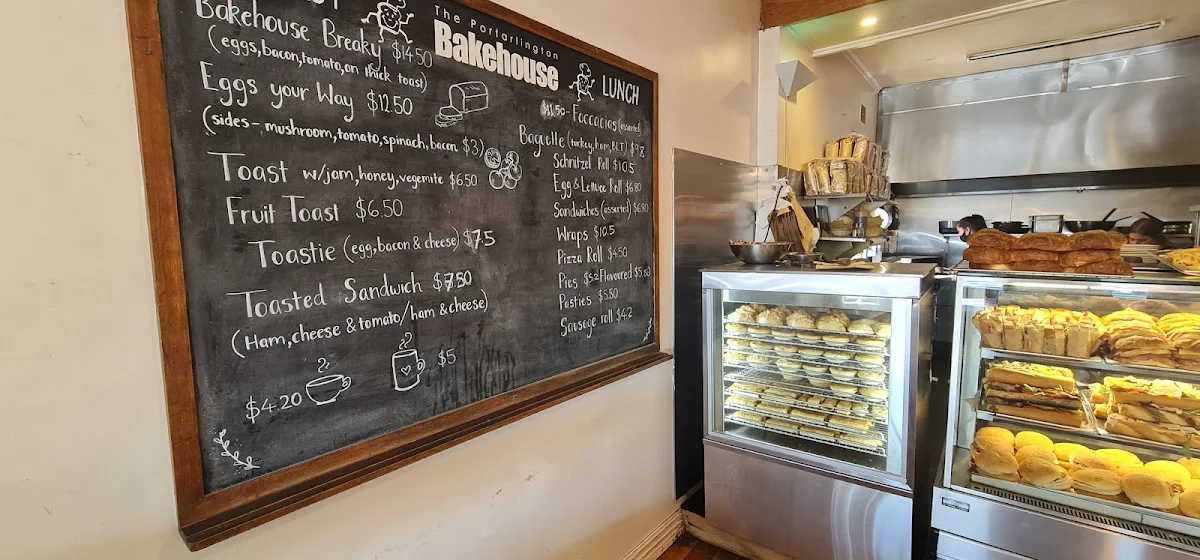 Bakehouse Breaky $14.50
(eggs,bacon,tomato,on thick toast)
Eggs your Way $12.50
(sides - mushroom,tomato,spinach,bacon $3)
Toast w/jam,honey,vegemite $6.50
Fruit Toast $6.50
Toastie (egg,bacon & cheese) $7.5
Toasted Sandwich $7.50
(Ham,cheese & tomato/ham & cheese)
$4.20
$5
The Portarlington
Bakehouse
LUNCH
Foccacias (assorted)
Baguette (turkey,ham,BLT)
Schnitzel Roll $10.5
Egg & Lettuce Roll $6.80
Sandwiches (assorted) $6.80
Wraps $10.5
Pizza Roll $4.50
Pies $5.2 Flavoured $5.50
Pasties $5.50
Sausage roll $4.2